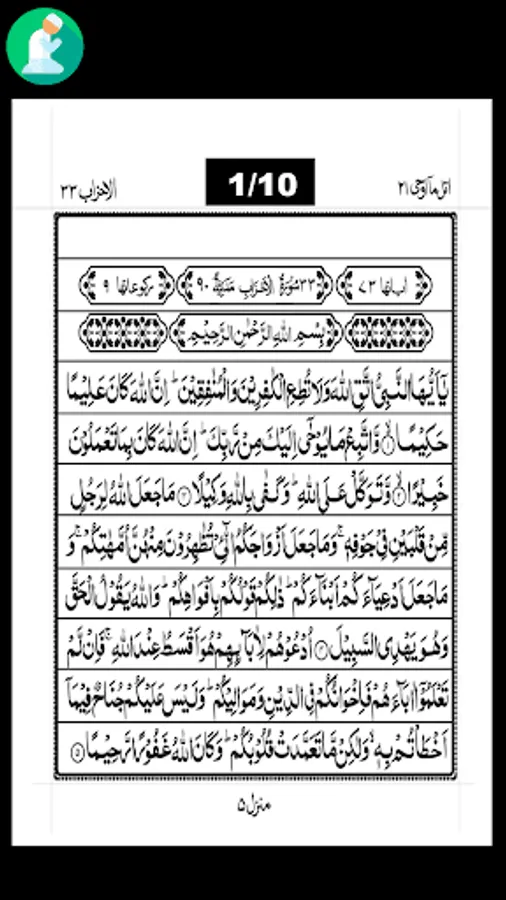 الاحزاب ٣٣
1/10
اتل ماۤ اوحی ٢١
اٰیاتها ٧٣
٣٣ سُوْرَةُ الْاَحْزَابِ مَدَنِيَّةٌ ٩٠
رکوعاتها ٩
بِسْمِ اللهِ الرَّحْمٰنِ الرَّحِيْمِ
يٰۤاَيُّهَا النَّبِيُّ اتَّقِ اللهَ وَلَا تُطِعِ الْكٰفِرِيْنَ وَالْمُنٰفِقِيْنَ ؕ اِنَّ اللهَ كَانَ عَلِيْمًا
حَكِيْمًا ۙ﴿١﴾ وَّاتَّبِعْ مَا يُوْحٰۤى اِلَيْكَ مِنْ رَّبِّكَ ؕ اِنَّ اللهَ كَانَ بِمَا تَعْمَلُوْنَ
خَبِيْرًا ۙ﴿٢﴾ وَّتَوَكَّلْ عَلَى اللهِ ؕ وَكَفٰى بِاللهِ وَكِيْلًا ﴿٣﴾ مَا جَعَلَ اللهُ لِرَجُلٍ
مِّنْ قَلْبَيْنِ فِيْ جَوْفِهٖ ۚ وَمَا جَعَلَ اَزْوَاجَكُمُ الّٰٓـِٔيْ تُظٰهِرُوْنَ مِنْهُنَّ اُمَّهٰتِكُمْ ۚ وَ
مَا جَعَلَ اَدْعِيَآءَكُمْ اَبْنَآءَكُمْ ؕ ذٰلِكُمْ قَوْلُكُمْ بِاَفْوَاهِكُمْ ؕ وَاللهُ يَقُوْلُ الْحَقَّ
وَهُوَ يَهْدِى السَّبِيْلَ ﴿٤﴾ اُدْعُوْهُمْ لِاٰبَآئِهِمْ هُوَ اَقْسَطُ عِنْدَ اللهِ ۚ فَاِنْ لَّمْ
تَعْلَمُوْۤا اٰبَآءَهُمْ فَاِخْوَانُكُمْ فِى الدِّيْنِ وَمَوَالِيْكُمْ ؕ وَلَيْسَ عَلَيْكُمْ جُنَاحٌ فِيْمَاۤ
اَخْطَاْتُمْ بِهٖ ۙ وَلٰكِنْ مَّا تَعَمَّدَتْ قُلُوْبُكُمْ ؕ وَكَانَ اللهُ غَفُوْرًا رَّحِيْمًا ﴿٥﴾
منزل ٥